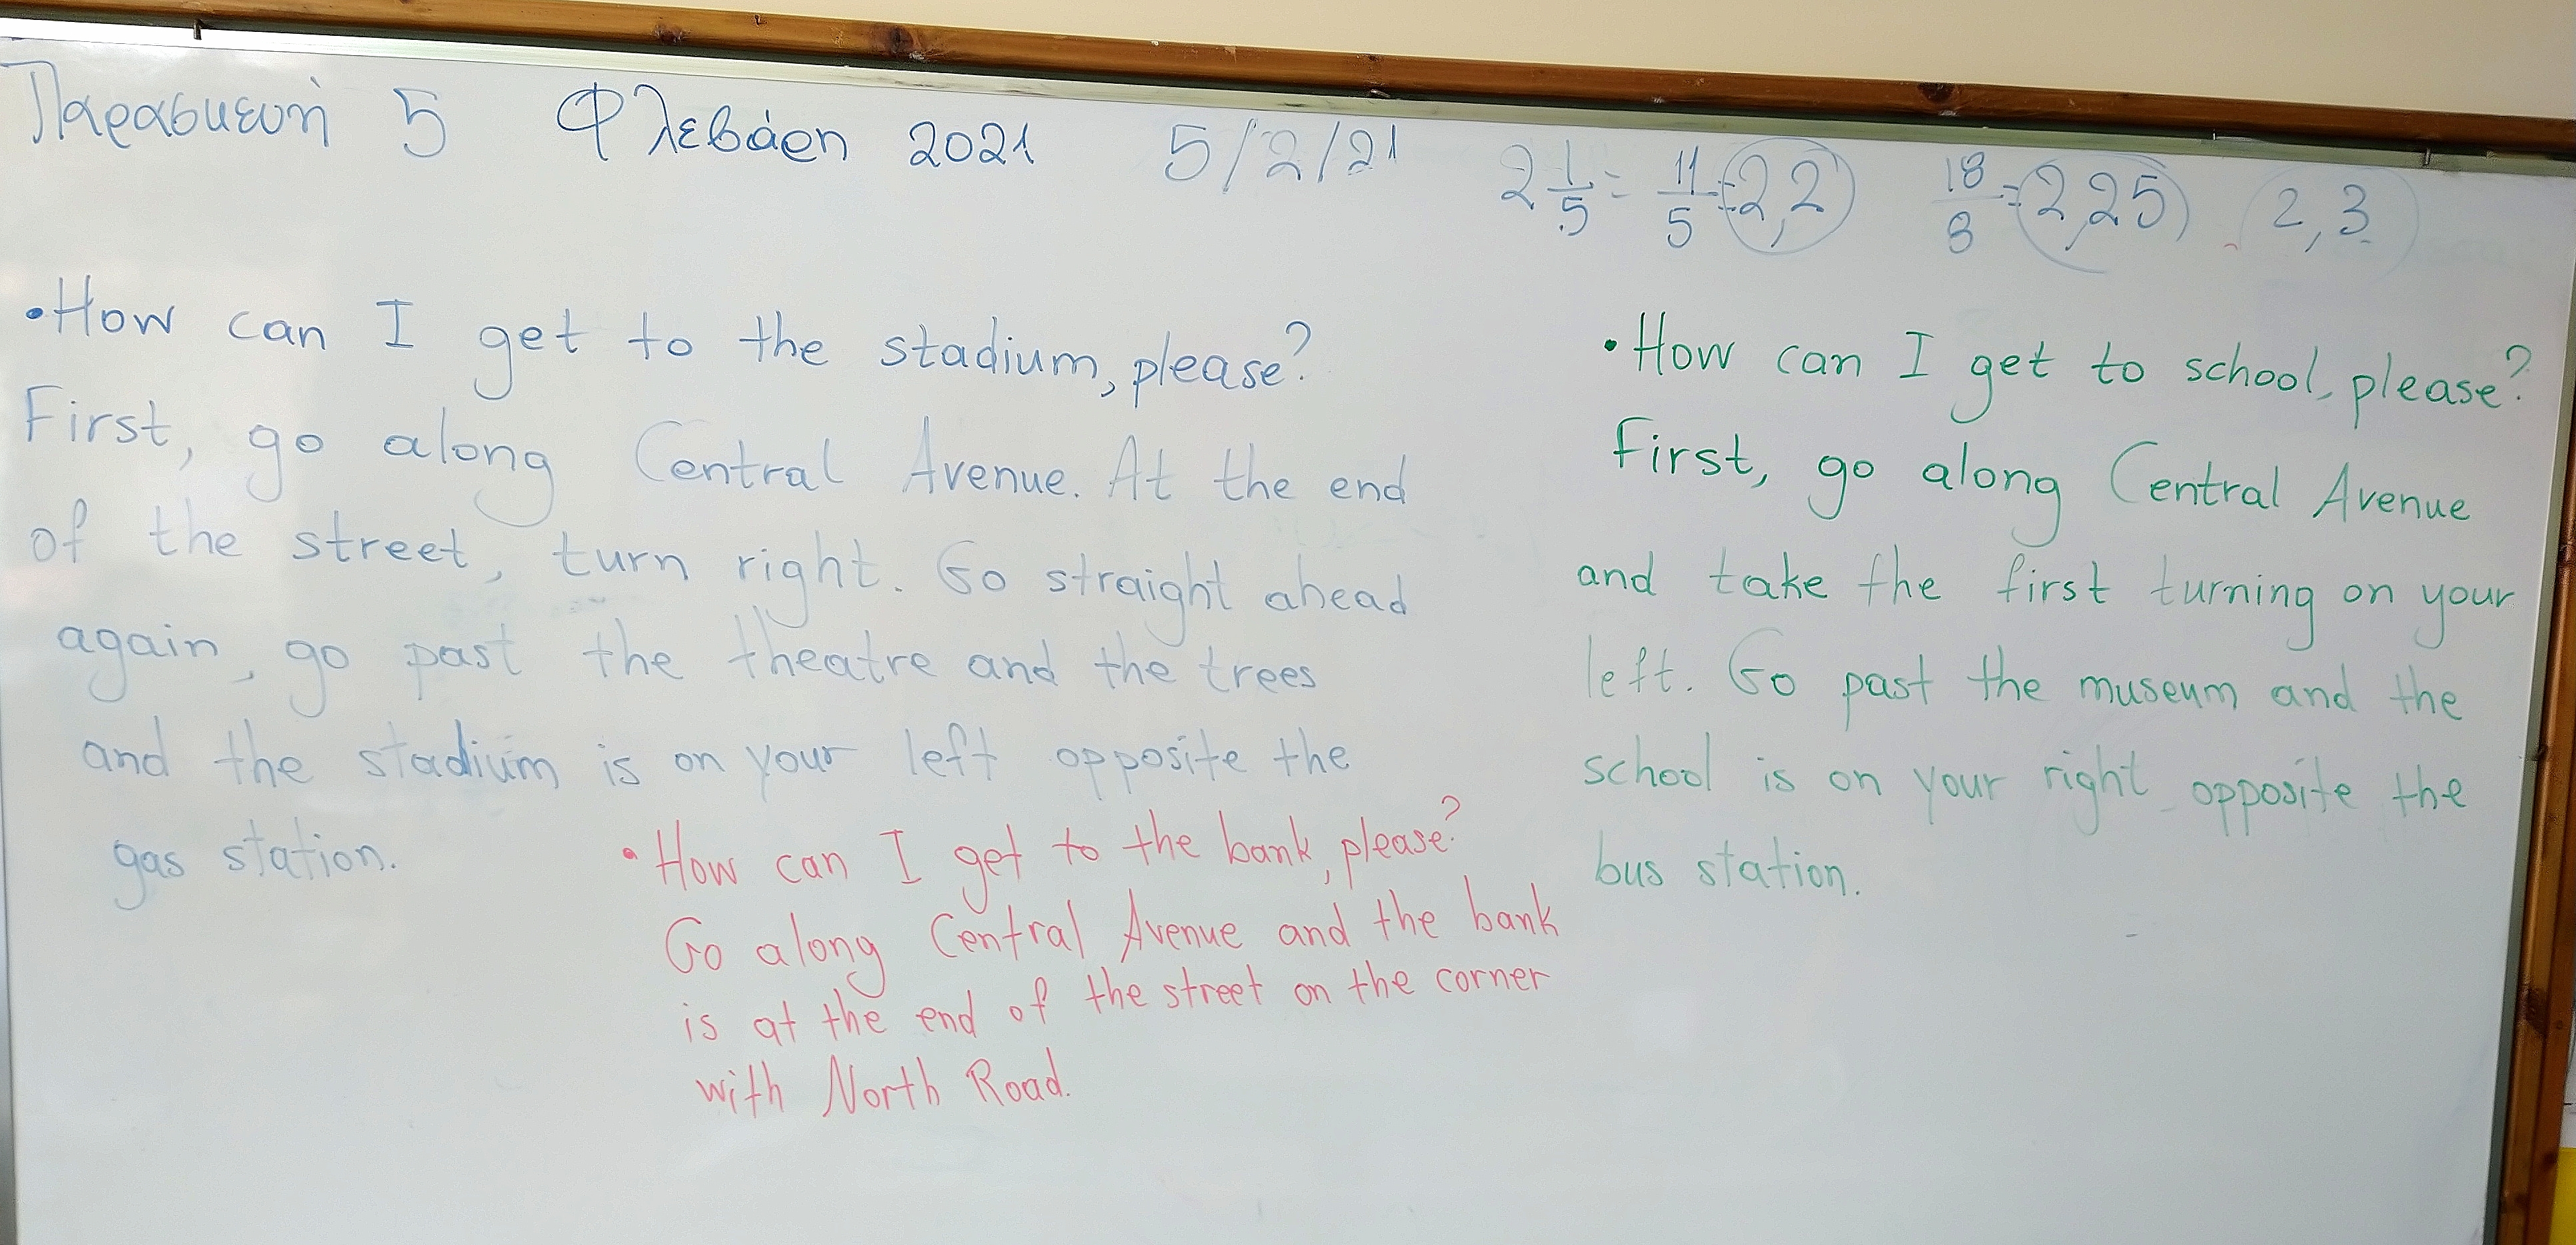 Παρασκευή 5 Φλεβάρη 2021 5/2/21 2 1/5 = 11/5 = 2,2 18/8 = 2,25 2,3
• How can I get to the stadium, please?
First, go along Central Avenue. At the end
of the street, turn right. Go straight ahead
again, go past the theatre and the trees
and the stadium is on your left opposite the
gas station.
• How can I get to the bank, please?
Go along Central Avenue and the bank
is at the end of the street on the corner
with North Road.
• How can I get to school, please?
First, go along Central Avenue
and take the first turning on your
left. Go past the museum and the
school is on your right opposite the
bus station.